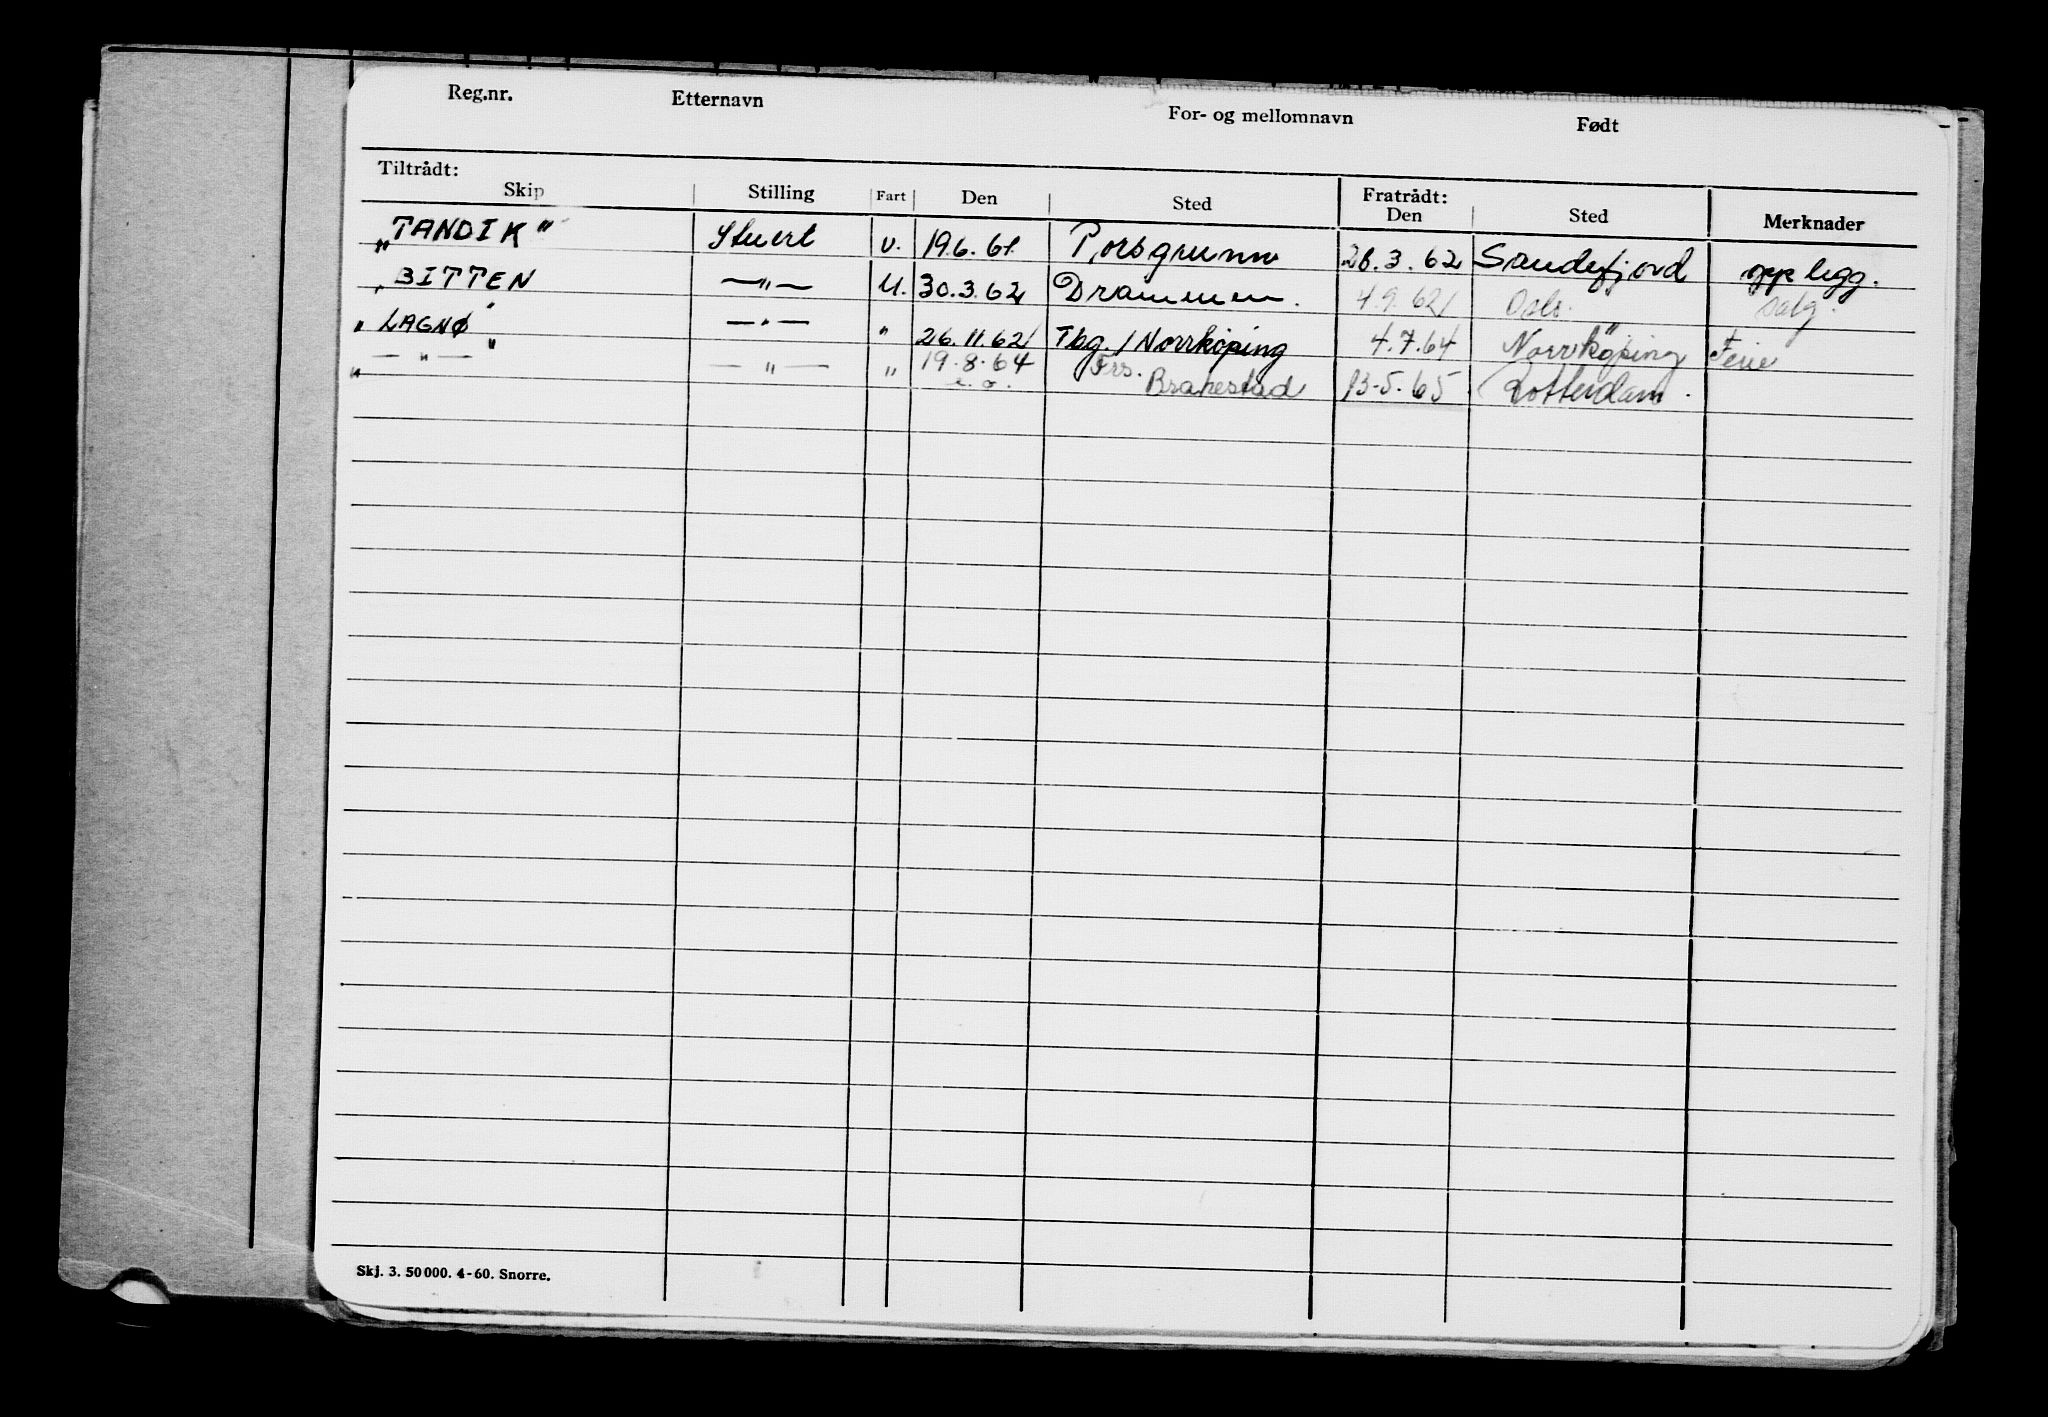 Reg.nr. Etternavn For- og mellomnavn Født
Tiltrådt: Fratrådt:
Skip Stilling Fart Den Sted Den Sted Merknader
„TANDIK" Stuert U. 19.6.61 Porsgrunn 28.3.62 Sandefjord opplegg.
„BITTEN" —"— U. 30.3.62 Drammen. 4.9.62 Oslo. Salg.
„LAGNØ" —"— " 26.11.62 Tbg./Norrköping 4.7.64 Norrköping Ferie
„—"— —"— " 19.8.64 Frs. Brahestad 13-5.65 Rotterdam.
Skj. 3. 50 000. 4-60. Snorre.